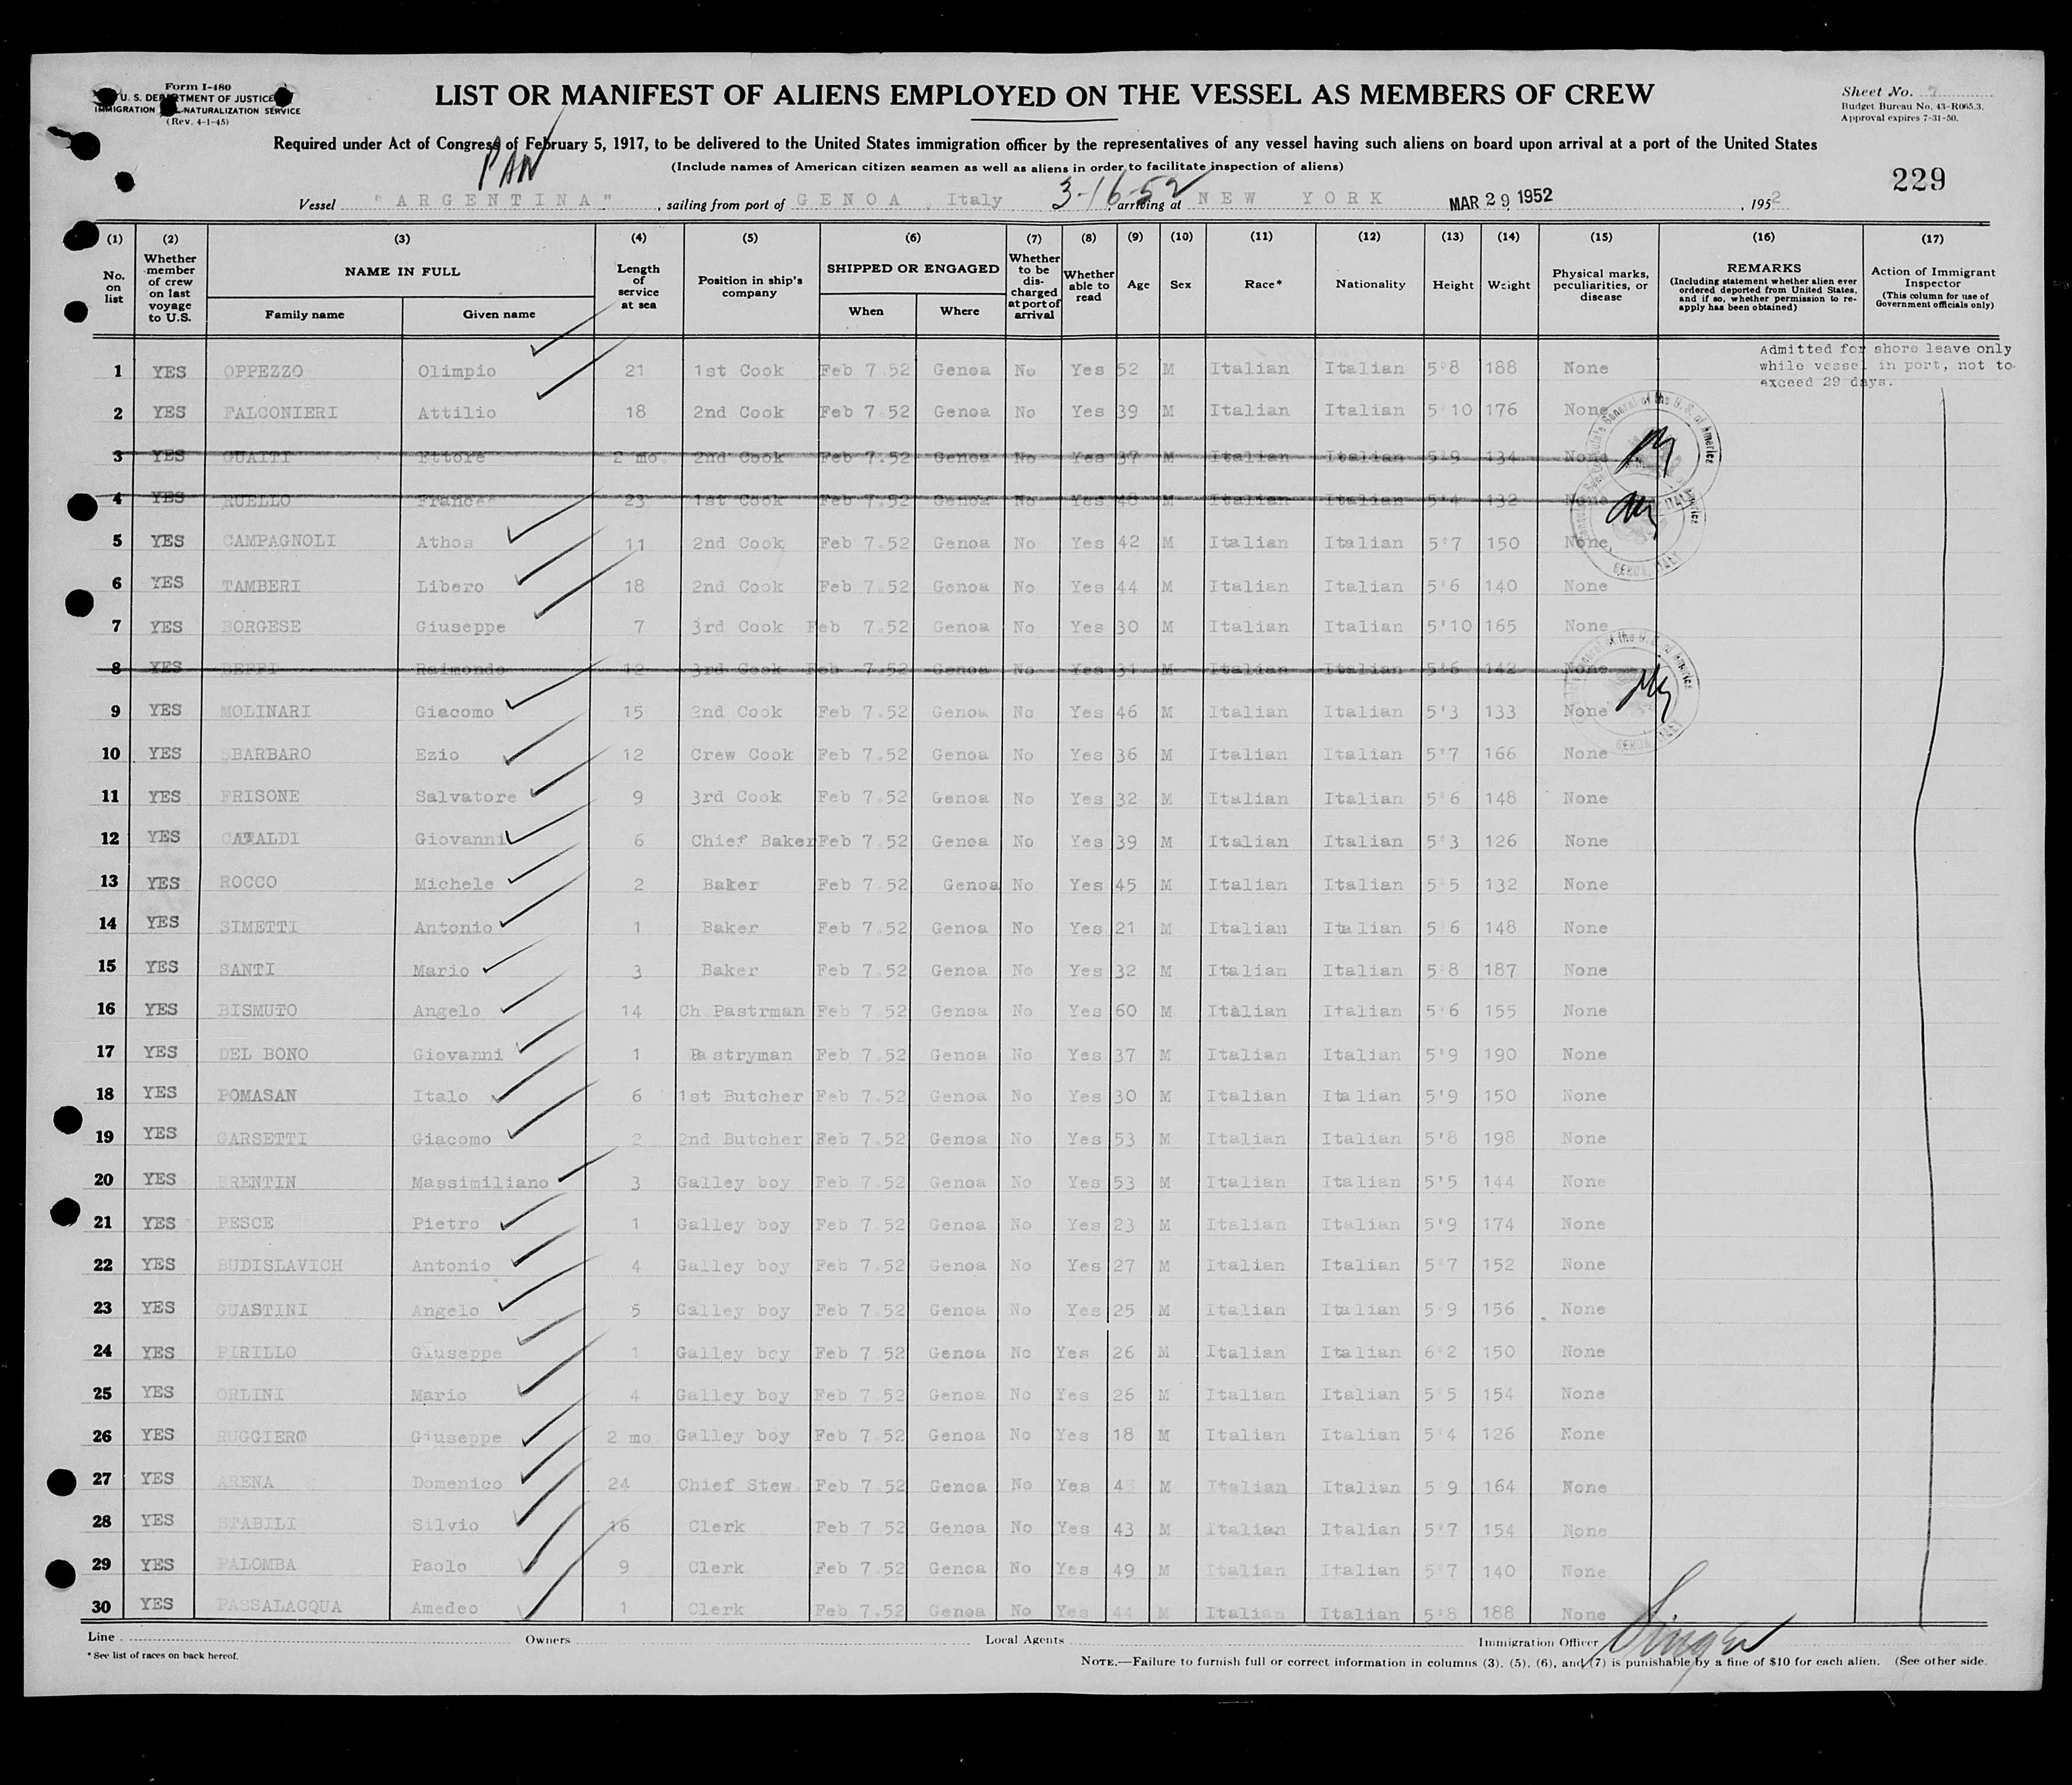 Form I-480
U. S. DEPARTMENT OF JUSTICE
IMMIGRATION NATURALIZATION SERVICE
(Rev. 4-1-45)
LIST OR MANIFEST OF ALIENS EMPLOYED ON THE VESSEL AS MEMBERS OF CREW
Sheet No. 7
Budget Bureau No. 43-R065.3.
Approval expires 7-31-50.
Required under Act of Congress of February 5, 1917, to be delivered to the United States immigration officer by the representatives of any vessel having such aliens on board upon arrival at a port of the United States
(Include names of American citizen seamen as well as aliens in order to facilitate inspection of aliens)
PAN
229
Vessel "ARGENTINA", sailing from port of GENOA, Italy 3-16-52, arriving at NEW YORK MAR 29 1952, 1952
(1) (2) (3) (4) (5) (6) (7) (8) (9) (10) (11) (12) (13) (14) (15) (16) (17)
No. on list
Whether member of crew on last voyage to U.S.
NAME IN FULL
Family name Given name
Length of service at sea
Position in ship's company
SHIPPED OR ENGAGED
When Where
Whether to be discharged at port of arrival
Whether able to read
Age Sex Race* Nationality Height Weight
Physical marks, peculiarities, or disease
REMARKS
(Including statement whether alien ever ordered deported from United States, and if so, whether permission to reapply has been obtained)
Action of Immigrant Inspector
(This column for use of Government officials only)
Admitted for shore leave only
while vessel in port, not to
exceed 29 days.
1 YES OPPEZZO Olimpio 21 1st Cook Feb 7.52 Genoa No Yes 52 M Italian Italian 5'8 188 None
2 YES FALCONIERI Attilio 18 2nd Cook Feb 7.52 Genoa No Yes 39 M Italian Italian 5'10 176 None
3 YES GUAITI Ettore 2 mo 2nd Cook Feb 7.52 Genoa No Yes 37 M Italian Italian 5'9 134 None
4 YES RUELLO 23 1st Cook Feb 7.52 Genoa No Yes 48 M Italian Italian 5'4 132 None
5 YES CAMPAGNOLI Athos 11 2nd Cook Feb 7.52 Genoa No Yes 42 M Italian Italian 5'7 150 None
6 YES TAMBERI Libero 18 2nd Cook Feb 7.52 Genoa No Yes 44 M Italian Italian 5'6 140 None
7 YES BORGESE Giuseppe 7 3rd Cook Feb 7.52 Genoa No Yes 30 M Italian Italian 5'10 165 None
8 YES BEPPI Raimondo 12 3rd Cook Feb 7.52 Genoa No Yes 31 M Italian Italian 5'6 142 None
9 YES MOLINARI Giacomo 15 2nd Cook Feb 7.52 Genoa No Yes 46 M Italian Italian 5'3 133 None
10 YES SBARBARO Ezio 12 Crew Cook Feb 7.52 Genoa No Yes 36 M Italian Italian 5'7 166 None
11 YES FRISONE Salvatore 9 3rd Cook Feb 7.52 Genoa No Yes 32 M Italian Italian 5'6 148 None
12 YES CATALDI Giovanni 6 Chief Baker Feb 7.52 Genoa No Yes 39 M Italian Italian 5'3 126 None
13 YES ROCCO Michele 2 Baker Feb 7.52 Genoa No Yes 45 M Italian Italian 5'5 132 None
14 YES SIMETTI Antonio 1 Baker Feb 7.52 Genoa No Yes 21 M Italian Italian 5'6 148 None
15 YES SANTI Mario 3 Baker Feb 7.52 Genoa No Yes 32 M Italian Italian 5'8 187 None
16 YES BISMUTO Angelo 14 Ch Pastrman Feb 7.52 Genoa No Yes 60 M Italian Italian 5'6 155 None
17 YES DEL BONO Giovanni 1 Pastryman Feb 7.52 Genoa No Yes 37 M Italian Italian 5'9 190 None
18 YES POMASAN Italo 6 1st Butcher Feb 7.52 Genoa No Yes 30 M Italian Italian 5'9 150 None
19 YES GARSETTI Giacomo 2 2nd Butcher Feb 7.52 Genoa No Yes 53 M Italian Italian 5'8 198 None
20 YES BRENTIN Massimiliano 3 Galley boy Feb 7.52 Genoa No Yes 53 M Italian Italian 5'5 144 None
21 YES PESCE Pietro 1 Galley boy Feb 7.52 Genoa No Yes 23 M Italian Italian 5'9 174 None
22 YES BUDISLAVICH Antonio 4 Galley boy Feb 7.52 Genoa No Yes 27 M Italian Italian 5'7 152 None
23 YES GUASTINI Angelo 5 Galley boy Feb 7.52 Genoa No Yes 25 M Italian Italian 5'9 156 None
24 YES PIRILLO Giuseppe 1 Galley boy Feb 7.52 Genoa No Yes 26 M Italian Italian 6'2 150 None
25 YES ORLINI Mario 4 Galley boy Feb 7.52 Genoa No Yes 26 M Italian Italian 5'5 154 None
26 YES RUGGIERO Giuseppe 2 mo Galley boy Feb 7.52 Genoa No Yes 18 M Italian Italian 5'4 126 None
27 YES ARENA Domenico 24 Chief Stew Feb 7.52 Genoa No Yes M Italian Italian 5'9 164 None
28 YES STABILI Silvio 16 Clerk Feb 7.52 Genoa No Yes 43 M Italian Italian 5'7 154 None
29 YES PALOMBA Paolo 9 Clerk Feb 7.52 Genoa No Yes 49 M Italian Italian 5'7 140 None
30 YES PASSALACQUA Amedeo 1 Clerk Feb 7.52 Genoa No Yes 44 M Italian Italian 5'8 188 None
Line Owners Local Agents Immigration Officer Singer
* See list of races on back hereof.
NOTE.—Failure to furnish full or correct information in columns (3), (5), (6), and (7) is punishable by a fine of $10 for each alien. (See other side.